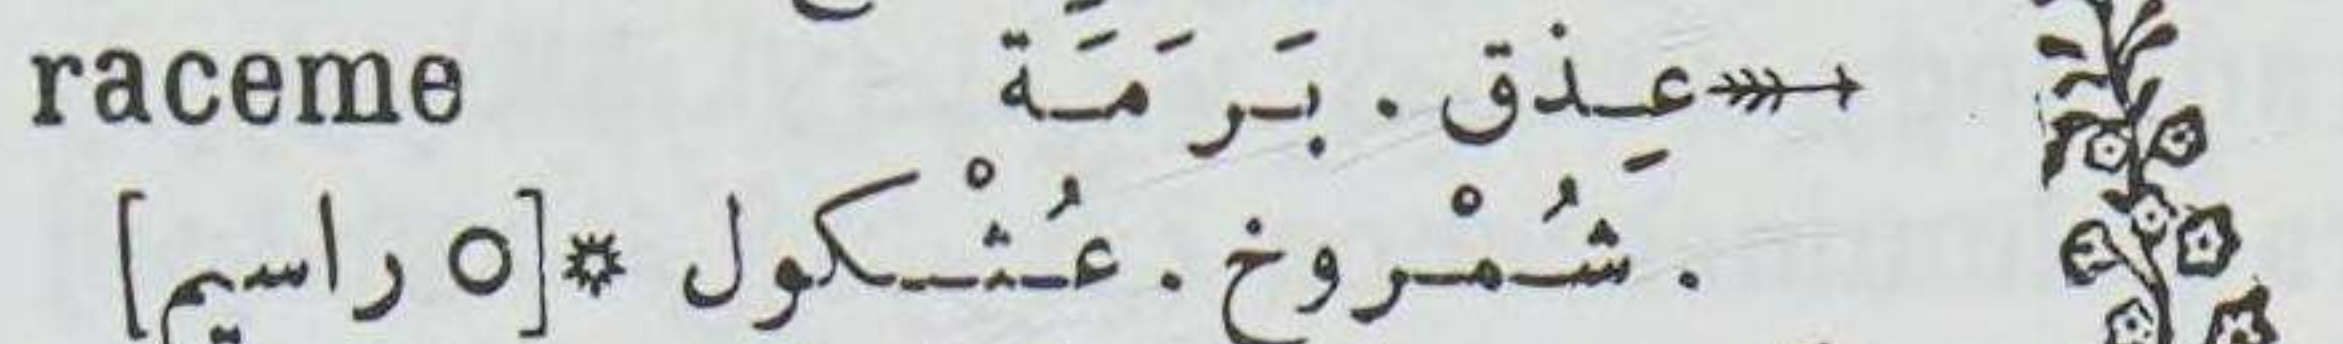 raceme عِذق . بَرَمَة
. شُمْروخ . عُثْكول *[○ راسيم]